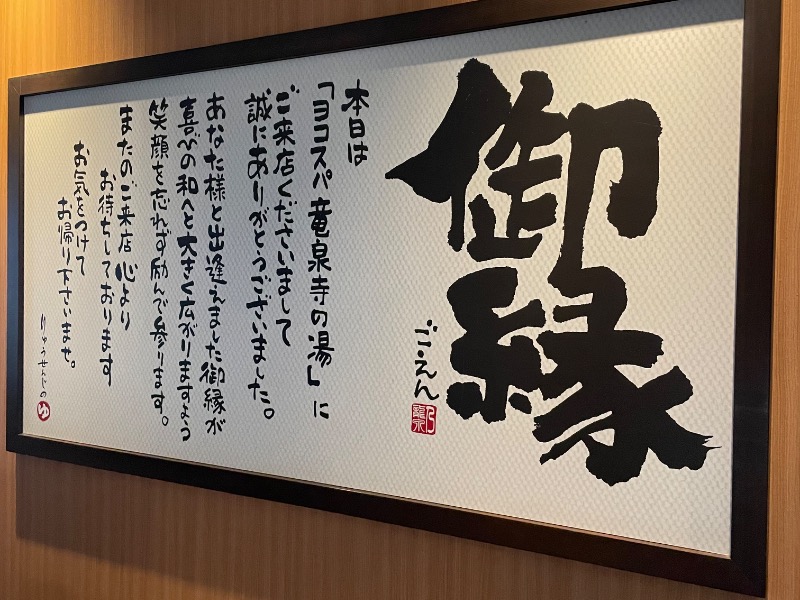 御縁
ご・えん
本日は
「ヨコスパ竜泉寺の湯」に
ご来店くださいまして
誠にありがとうございました。
あなた様と出逢えました御縁が
喜びの和へと大きく広がりますよう
笑顔を忘れず励んで参ります。
またのご来店心より
お待ちしております
お気をつけて
お帰り下さいませ。
りゅうせんじの ゆ